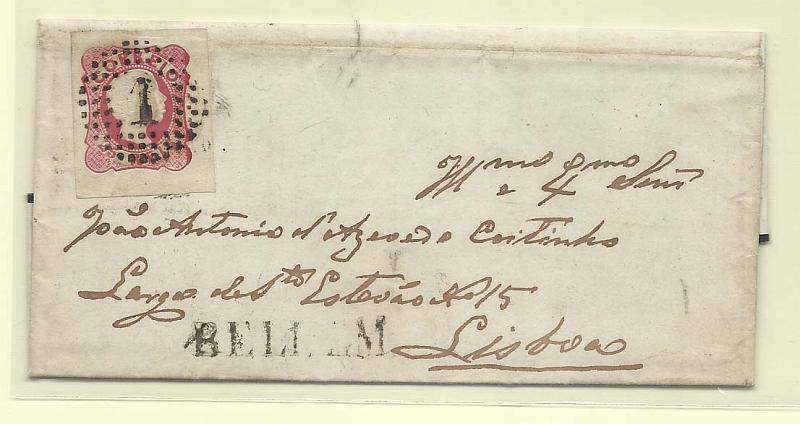 CORREIO
1
Illmo e Exmo Senr
João Antonio d'Azevedo Coitinho
Largo de Sto Estevão No 15
BELLEM
Lisboa